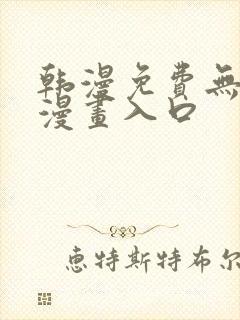 韩漫免費無
漫畫入口
恵特斯特布尔